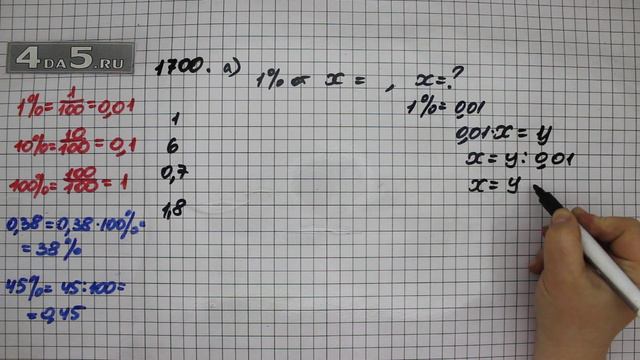 4DA5.RU
1700. а) 1% от x = , x=?
1% = 1/100 = 0,01
10% = 10/100 = 0,1
100% = 100/100 = 1
0,38 = 0,38·100% =
= 38%
45% = 45:100 =
= 0,45
1
6
0,7
1,8
1% = 0,01
0,01·x = y
x = y : 0,01
x = y